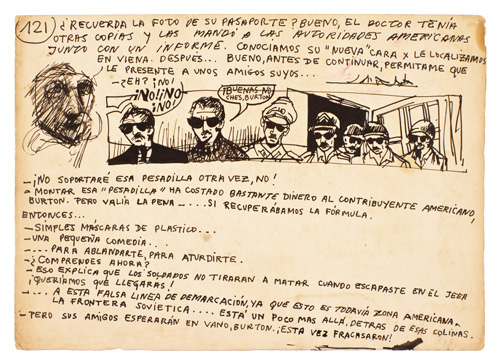 121
¿RECUERDA LA FOTO DE SU PASAPORTE? BUENO, EL DOCTOR TENÍA
OTRAS COPIAS Y LAS MANDÓ A LAS AUTORIDADES AMERICANAS
JUNTO CON UN INFORME. CONOCIAMOS SU "NUEVA" CARA Y LE LOCALIZAMOS
EN VIENA. DESPUES... BUENO, ANTES DE CONTINUAR, PERMITAME QUE
LE PRESENTE A UNOS AMIGOS SUYOS...
-¿EH? ¡NO!
¡NO! ¡NO
¡NO!
¡BUENAS NO
CHES, BURTON.
-¡NO SOPORTARÉ ESA PESADILLA OTRA VEZ, NO!
- MONTAR ESA "PESADILLA" HA COSTADO BASTANTE DINERO AL CONTRIBUYENTE AMERICANO,
BURTON. PERO VALÍA LA PENA..... SI RECUPERÁBAMOS LA FÓRMULA.
ENTONCES...
- SIMPLES MÁSCARAS DE PLASTICO...
- UNA PEQUEÑA COMEDIA...
-.... PARA ABLANDARTE, PARA ATURDIRTE.
- ¿COMPRENDES AHORA?
- ESO EXPLICA QUE LOS SOLDADOS NO TIRARAN A MATAR CUANDO ESCAPASTE EN EL JEEP
¡QUERÍAMOS QUE LLEGARAS!
-... A ESTA FALSA LINEA DE DEMARCACIÓN, YA QUE ESTO ES TODAVÍA ZONA AMERICANA.
LA FRONTERA SOVIETICA.... ESTÁ UN POCO MAS ALLÁ, DETRAS DE ESAS COLINAS.
- PERO SUS AMIGOS ESPERARÁN EN VANO, BURTON. ¡ESTA VEZ FRACASARON!